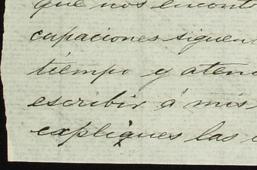 que nos encont
cupaciones siguen
tiempo y aten
escribir á mis
expliques las